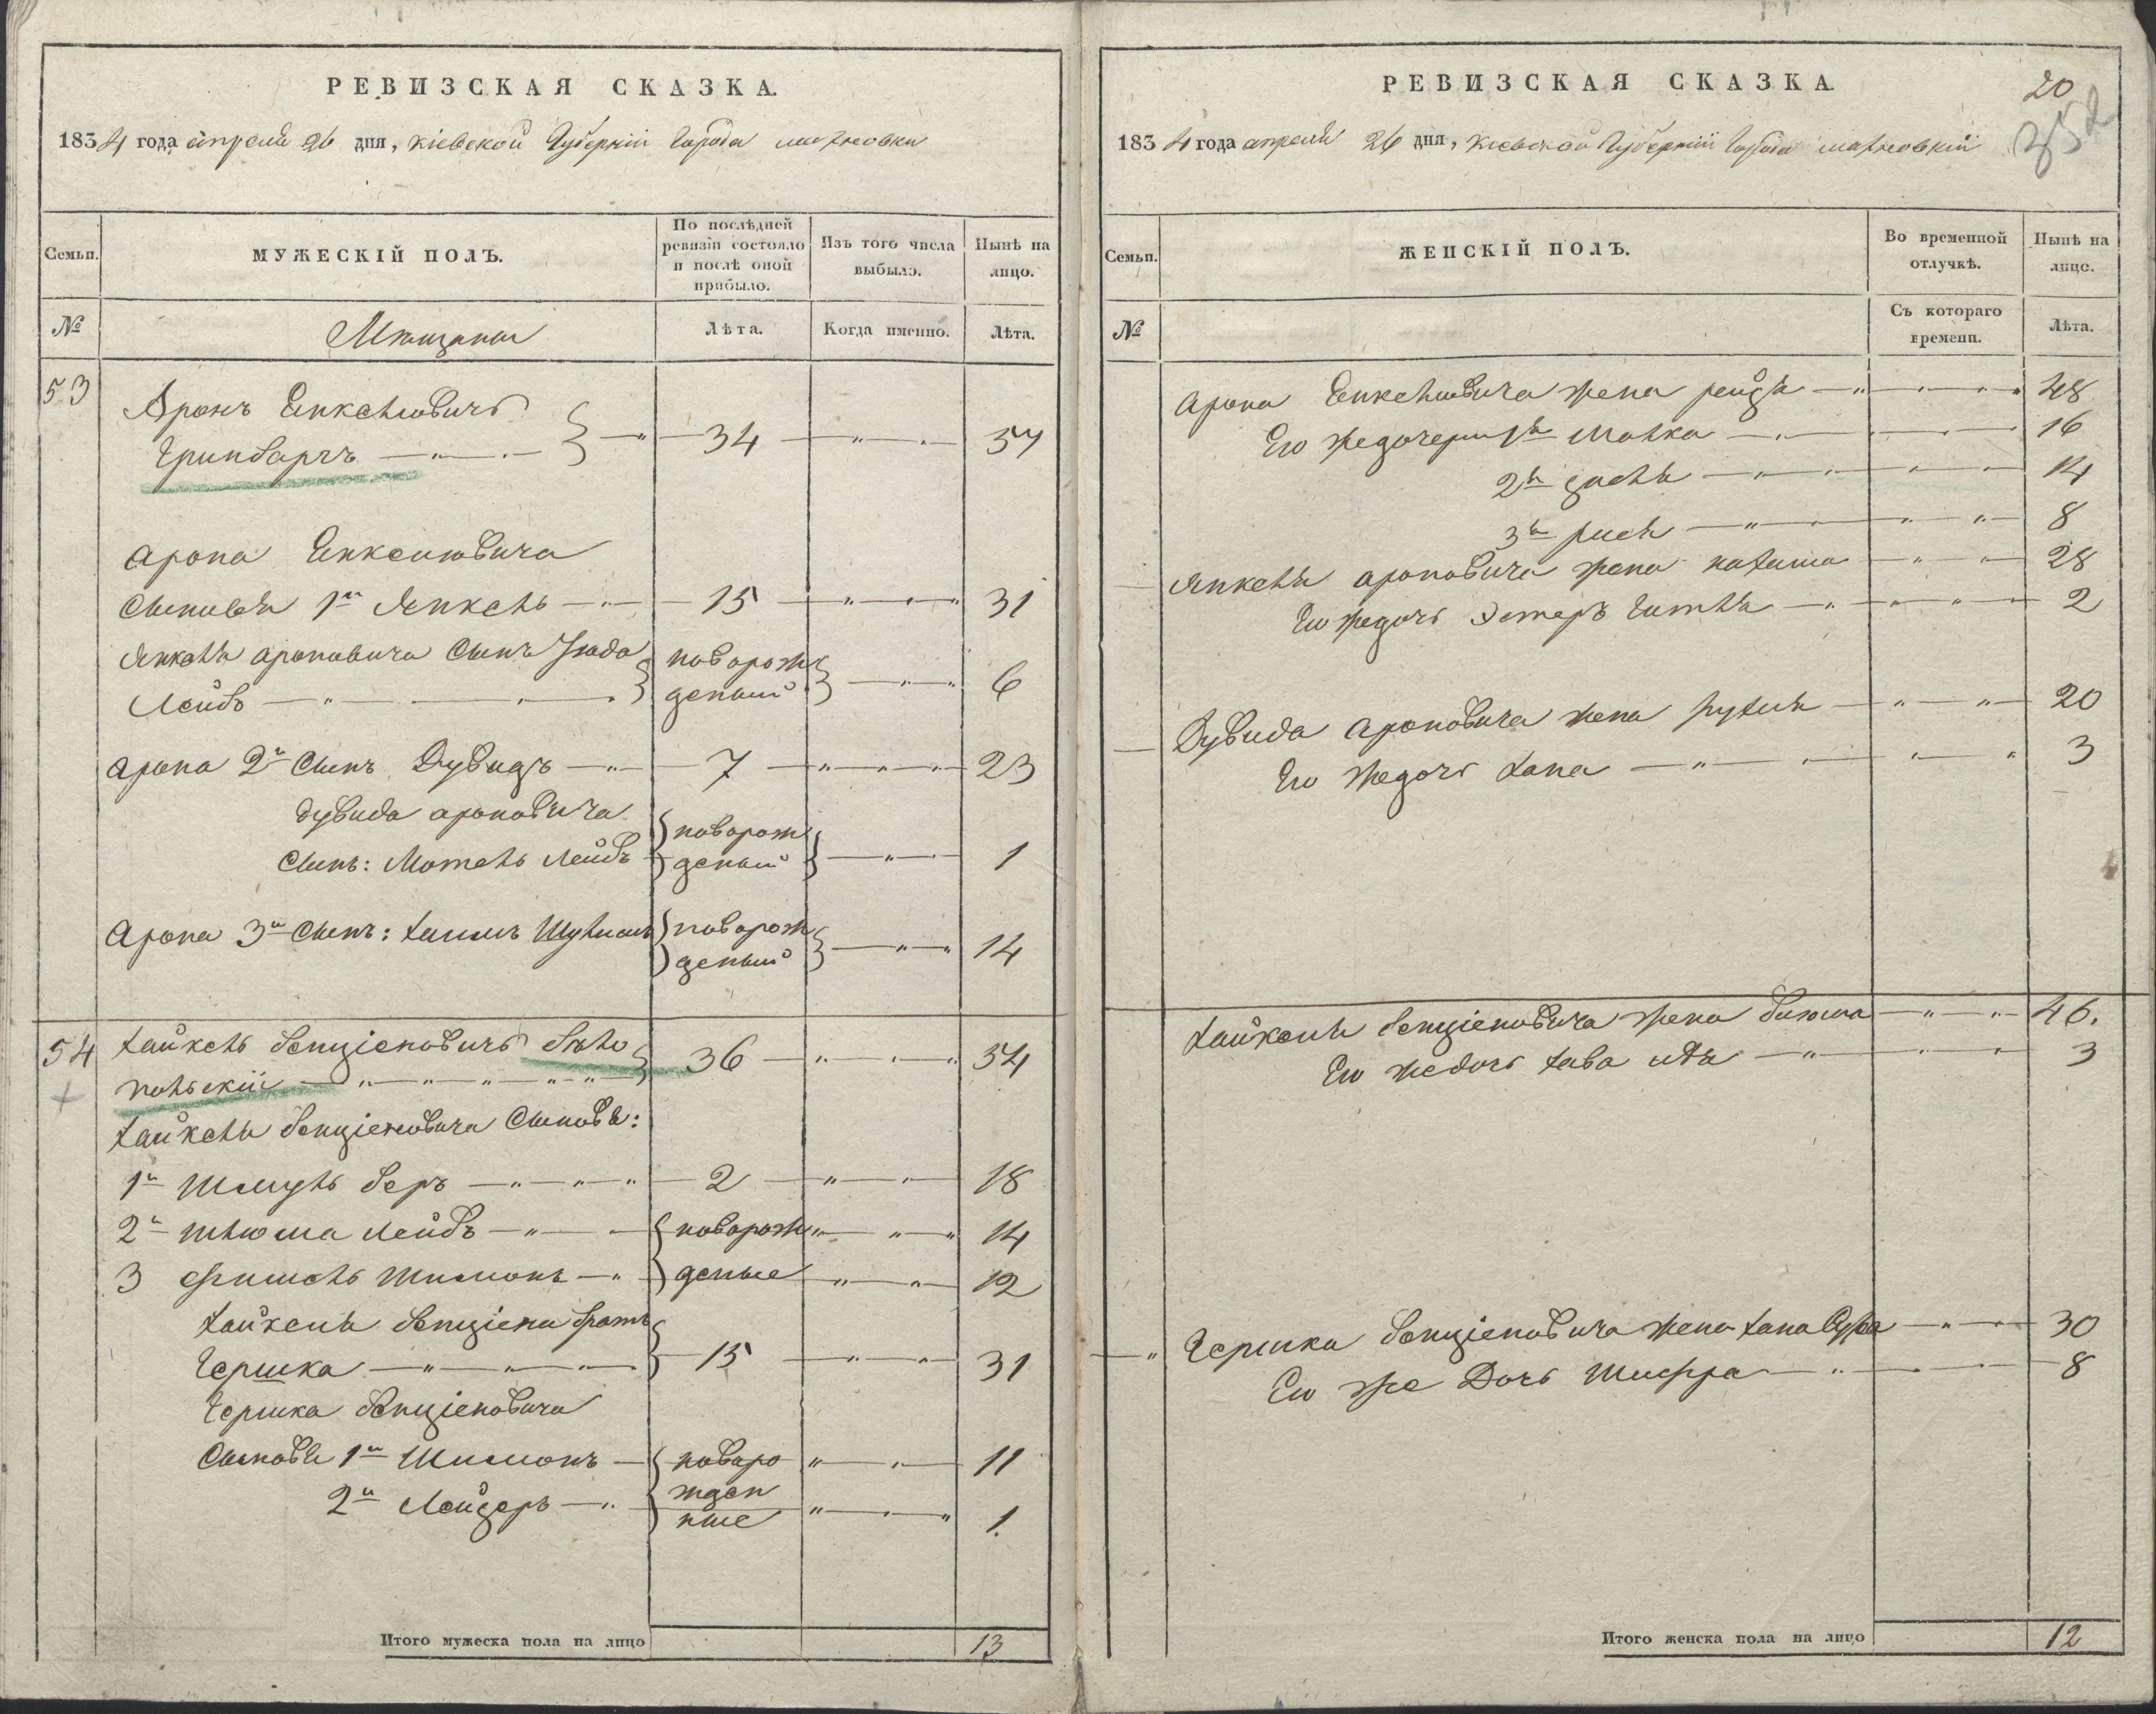 РЕВИЗСКАЯ СКАЗКА.
1834 года апреля 26 дня, Кіевской Губерніи Города Махновки
Семьи.
МУЖЕСКІЙ ПОЛЪ.
По послѣдней ревизіи состояло и послѣ оной прибыло.
Изъ того числа выбыло.
Нынѣ на лицо.
№
Мѣщане
Лѣта.
Когда именно.
Лѣта.
53
Аронъ Янкелювичъ
Гринбаргъ 34
Арона Янкелювича
Сыновья 1й Янкель 15 31
Янкеля Ароновича Сынъ Іуда новорож
Лейбъ деный 6
Арона 2й Сынъ Дувидъ 7 23
Дувида Ароновича новорож
Сынъ: Мотель Лейбъ деный 1
Арона 3й Сынъ: Хаимъ новорож
деный 14
54 Хайкель Бенціеновичъ Бѣло
польскій 36 54
Хайкеля Бенціеновича Сыновья:
1й Шмуль Беръ 2 18
2й Шлюма Лейбъ новорож 14
3 Фишель Шимонъ деные 12
Хайкеля Бенціена братъ
Гершка 15 31
Гершка Бенціеновича
Сыновья 1й Шимонъ новоро 11
2й Лейзеръ жден
ные 1
Итого мужеска пола на лицо 13
РЕВИЗСКАЯ СКАЗКА.
20
352
1834 года апреля 26 дня, Кіевской Губерніи Города Махновкіи
Семьи.
ЖЕНСКІЙ ПОЛЪ.
Во временной отлучкѣ.
Нынѣ на лицо.
№
Съ котораго времени.
Лѣта.
Арона Янкелювича жена Рейзя 48
Его же дочери 1я Малка 16
2я 14
3я Рися 8
Янкеля Ароновича жена Нахама 28
Его же дочь Эстеръ Гитля 2
Дувида Ароновича жена Рухля 20
Его же дочь Хана 3
Хайкеля Бенціеновича жена 46.
Его же дочь Хава Идя 3
Гершка Бенціеновича жена Хана Сура 30
Его же Дочь Шифра 8
Итого женска пола на лицо 12